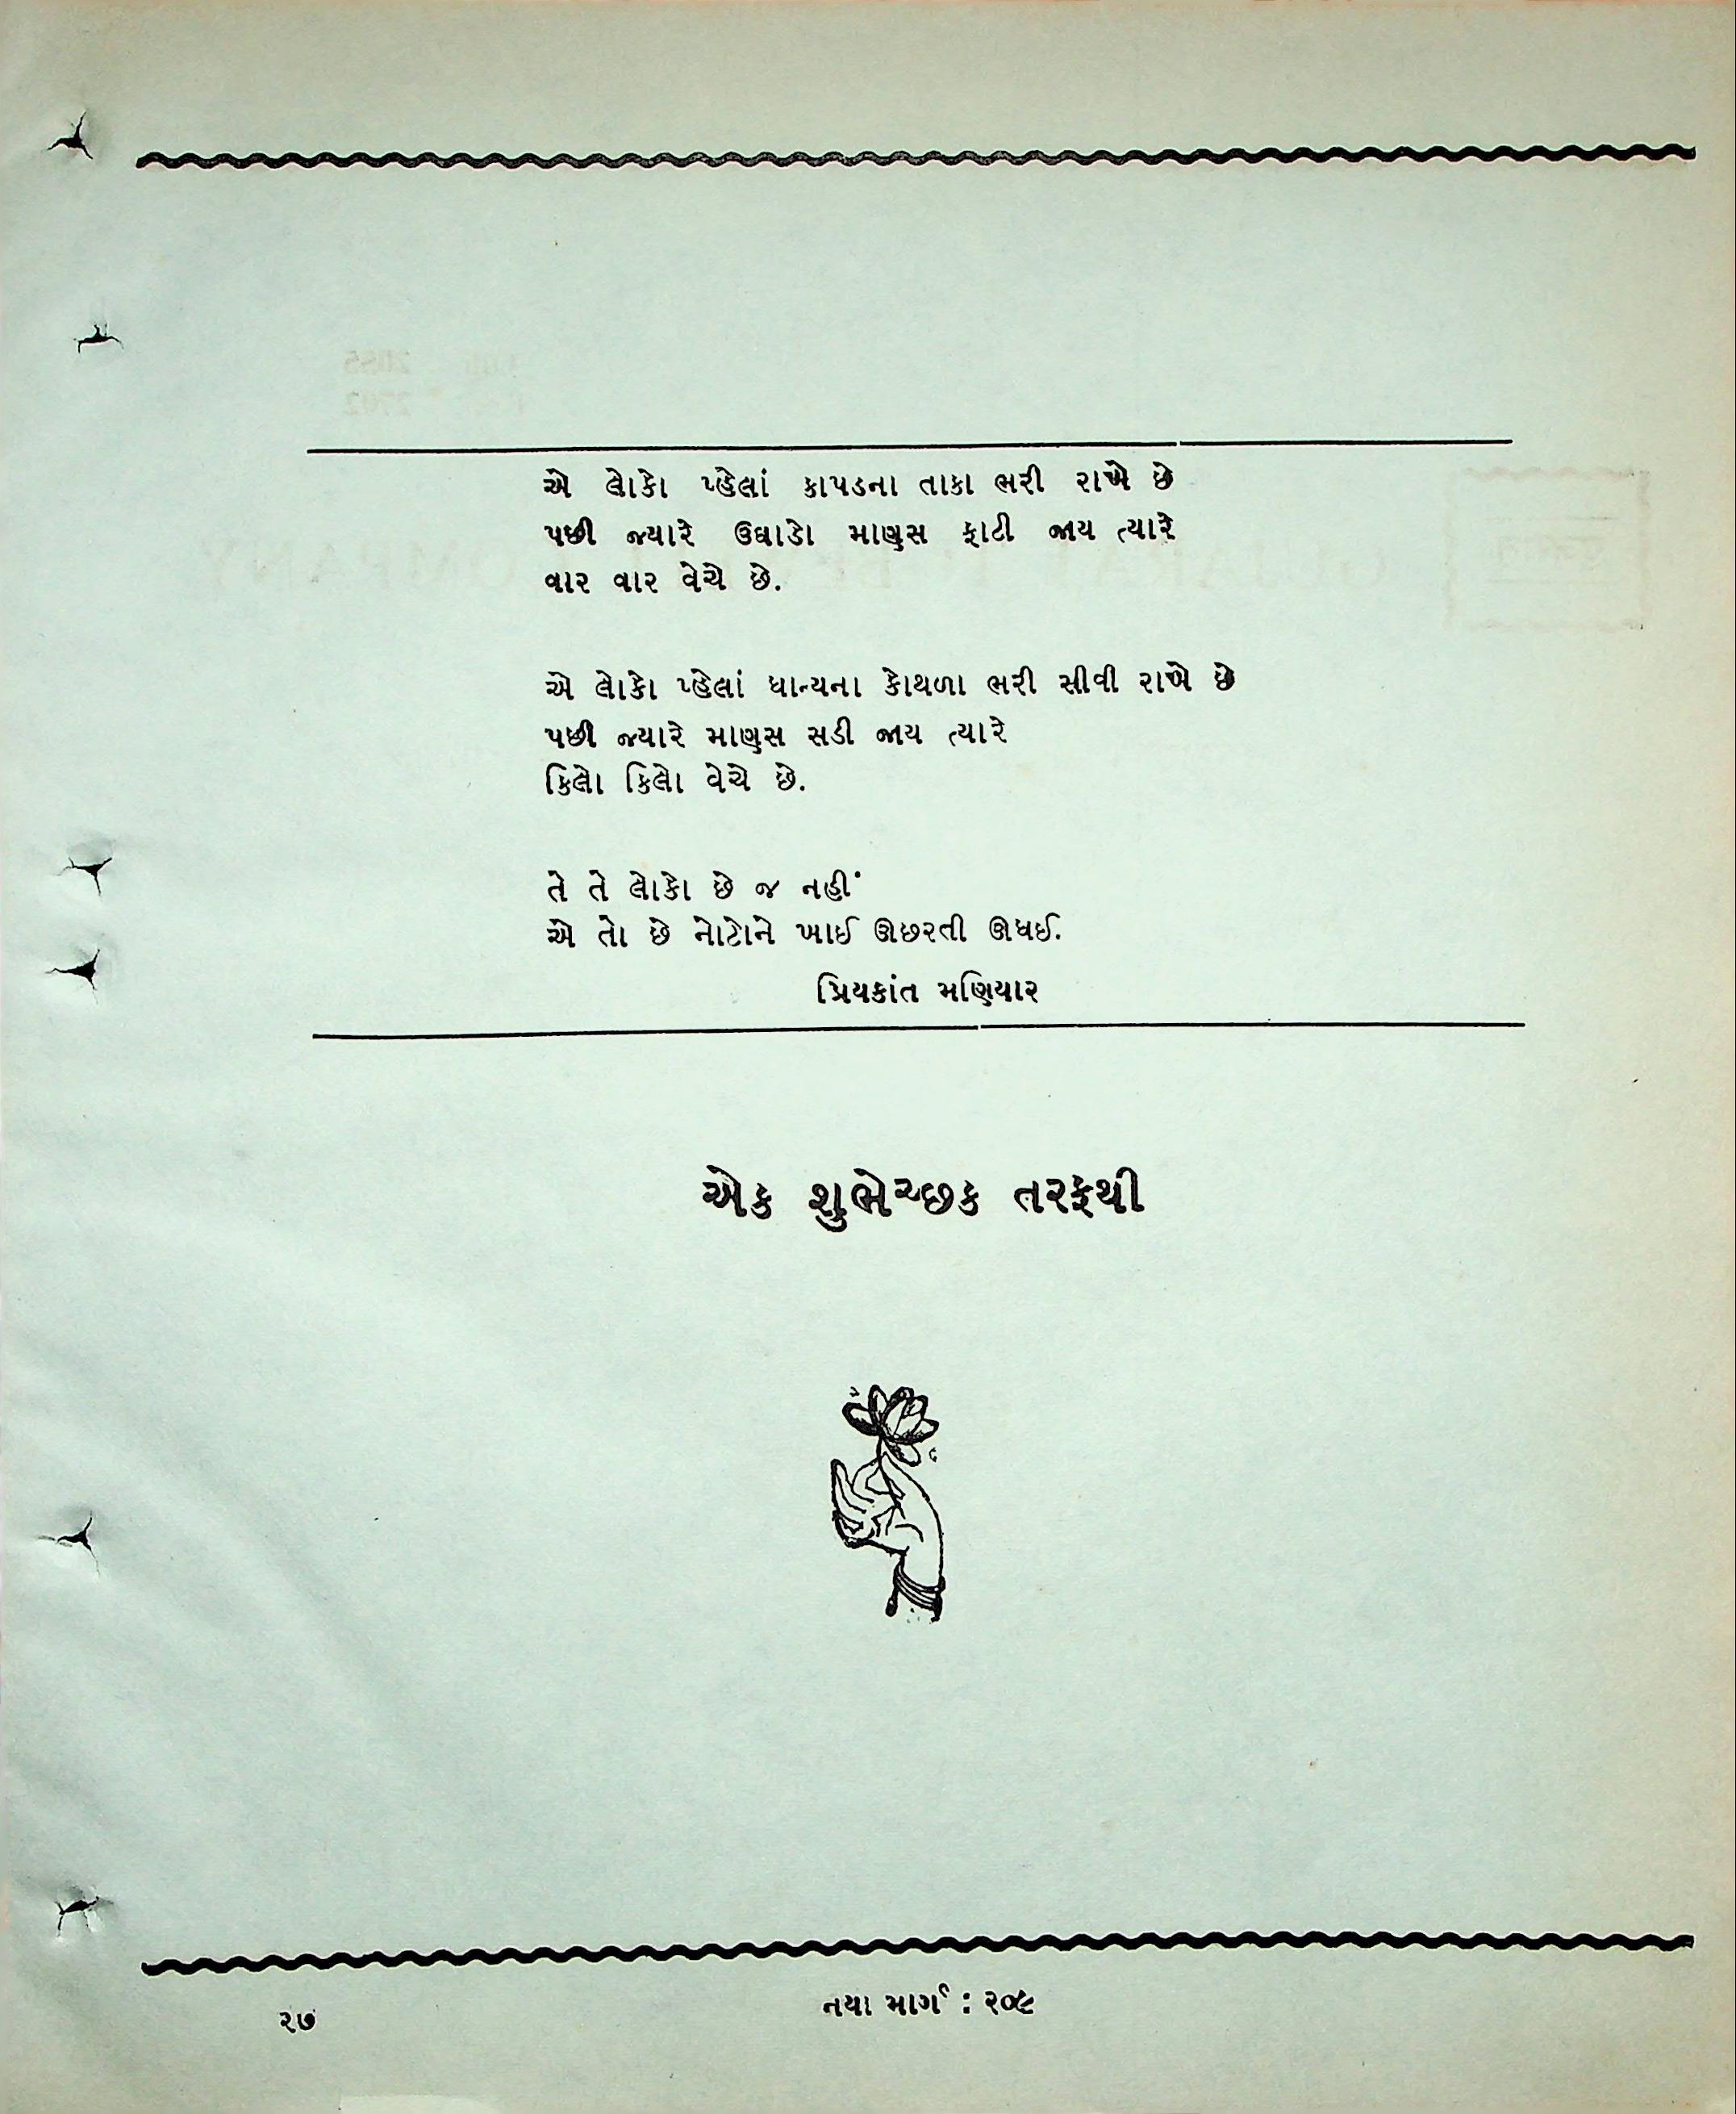 એ લોકો પ્હેલાં કાપડના તાકા ભરી રાખે છે
પછી જ્યારે ઉઘાડો માણસ ફાટી જાય ત્યારે
વાર વાર વેચે છે.
એ લોકો પ્હેલાં ધાન્યના કોથળા ભરી સીવી રાખે છે
પછી જ્યારે માણસ સડી જાય ત્યારે
કિલો કિલો વેચે છે.
તે તે લોકો છે જ નહીં
એ તો છે નોટોને ખાઈ ઊછરતી ઊધઈ.
પ્રિયકાંત મણિયાર
એક શુભેચ્છક તરફથી
નયા માર્ગ : ૨૦૯
૨૭